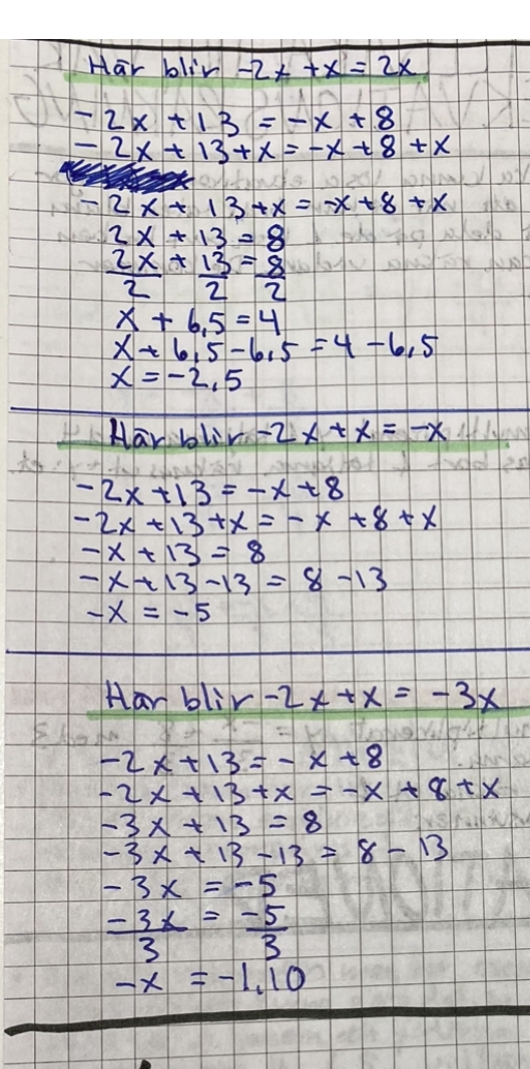 Här blir -2x + x = 2x
-2x + 13 = -x + 8
-2x + 13 + x = -x + 8 + x
-2x + 13 + x = -x + 8 + x
2x + 13 = 8
2x/2 + 13/2 = 8/2
x + 6,5 = 4
x + 6,5 - 6,5 = 4 - 6,5
x = -2,5
Här blir -2x + x = -x
-2x + 13 = -x + 8
-2x + 13 + x = -x + 8 + x
-x + 13 = 8
-x + 13 - 13 = 8 - 13
-x = -5
Här blir -2x + x = -3x
-2x + 13 = -x + 8
-2x + 13 + x = -x + 8 + x
-3x + 13 = 8
-3x + 13 - 13 = 8 - 13
-3x = -5
-3x/3 = -5/3
-x = -1,10